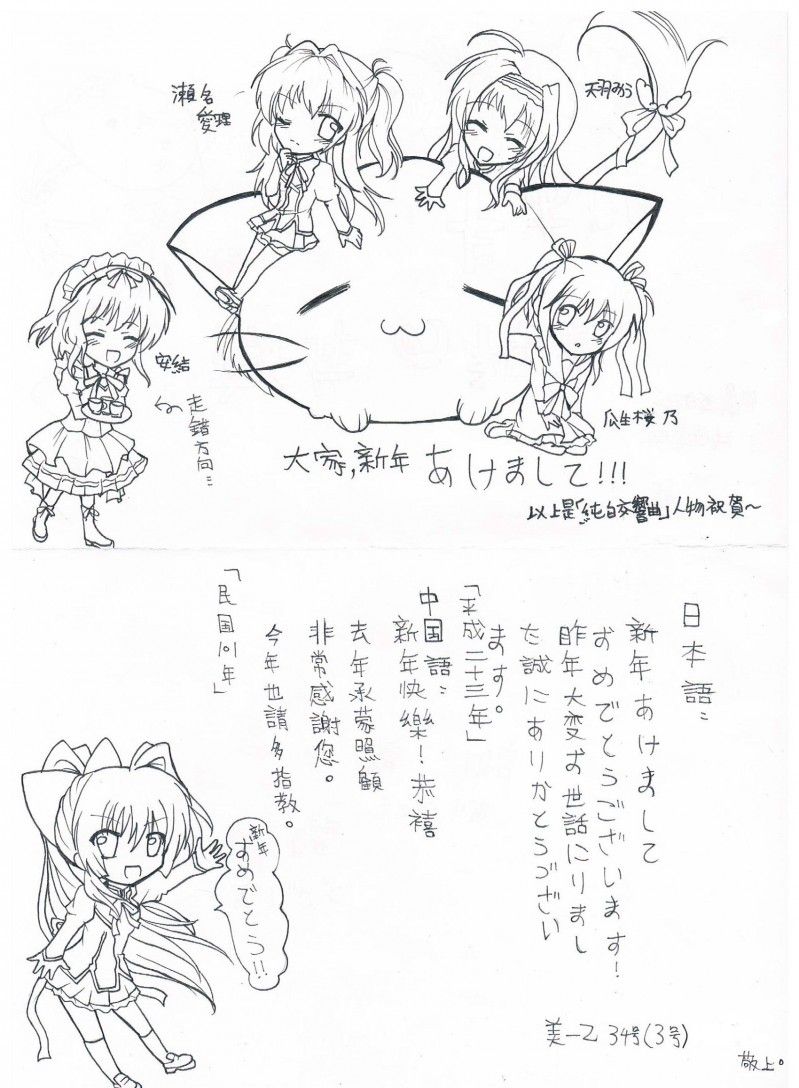 瀬名
愛理
天羽みう
安結
走錯方向：：
瓜生桜乃
大家,新年 あけまして!!!
以上是「純白交響曲」人物祝賀～
日本語：
新年あけまして
おめでとうございます!
昨年大変お世話にりまし
た誠にありかとうござい
ます。
「平成二十三年」
中国語：
新年快樂!恭禧
去年承蒙照顧
非常感謝您。
今年也請多指教。
「民国101年」
新年
おめでとう!!
美一乙 34号(3号)
敬上。